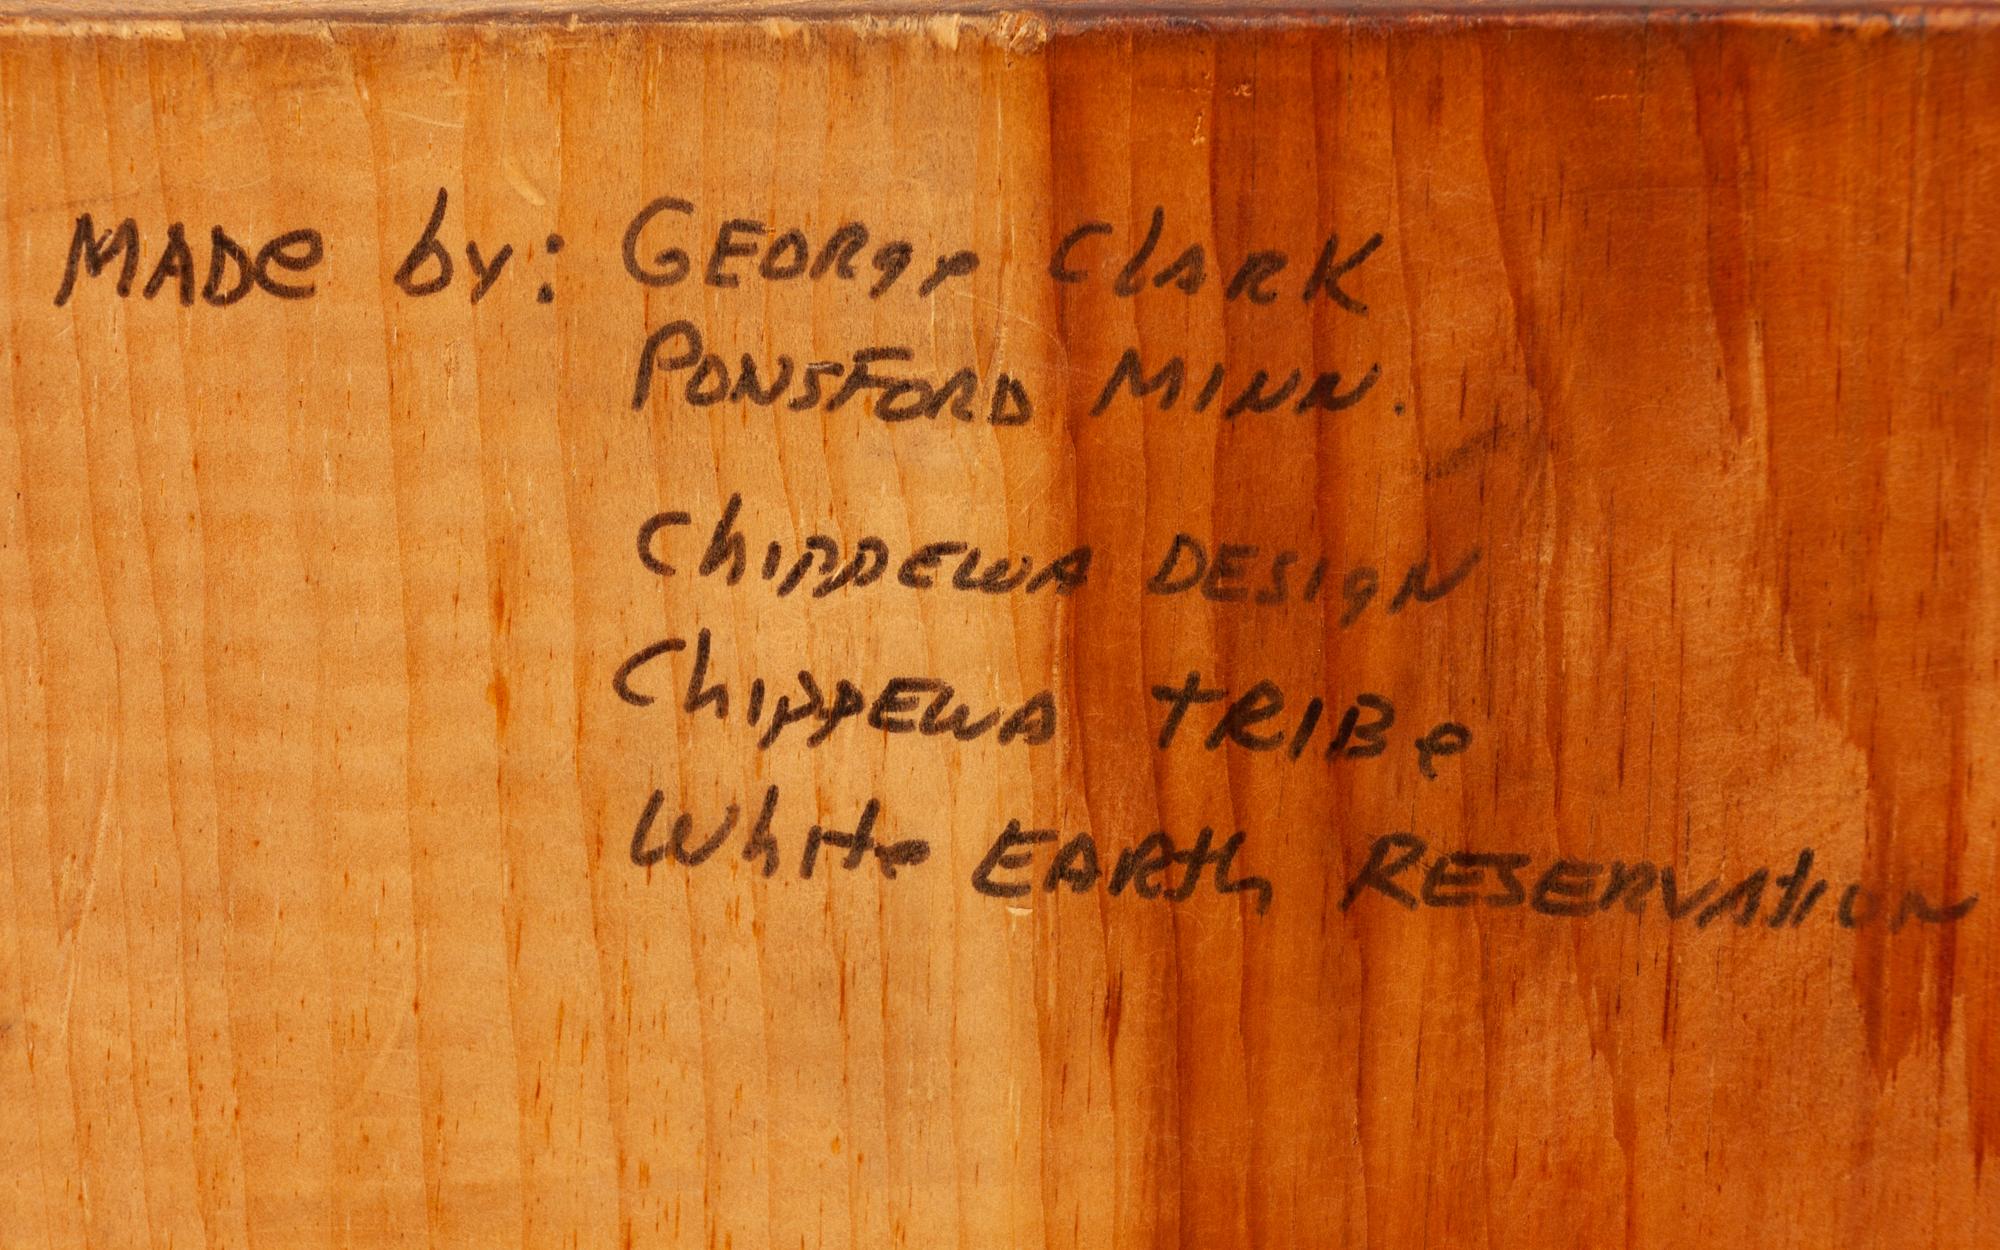 MADe by: GEORge ClARK
PONSFORD MINN.
ChIPPEWA DESIgN
ChIPPEWA tRIBe
WhIte EARth RESERVAtION